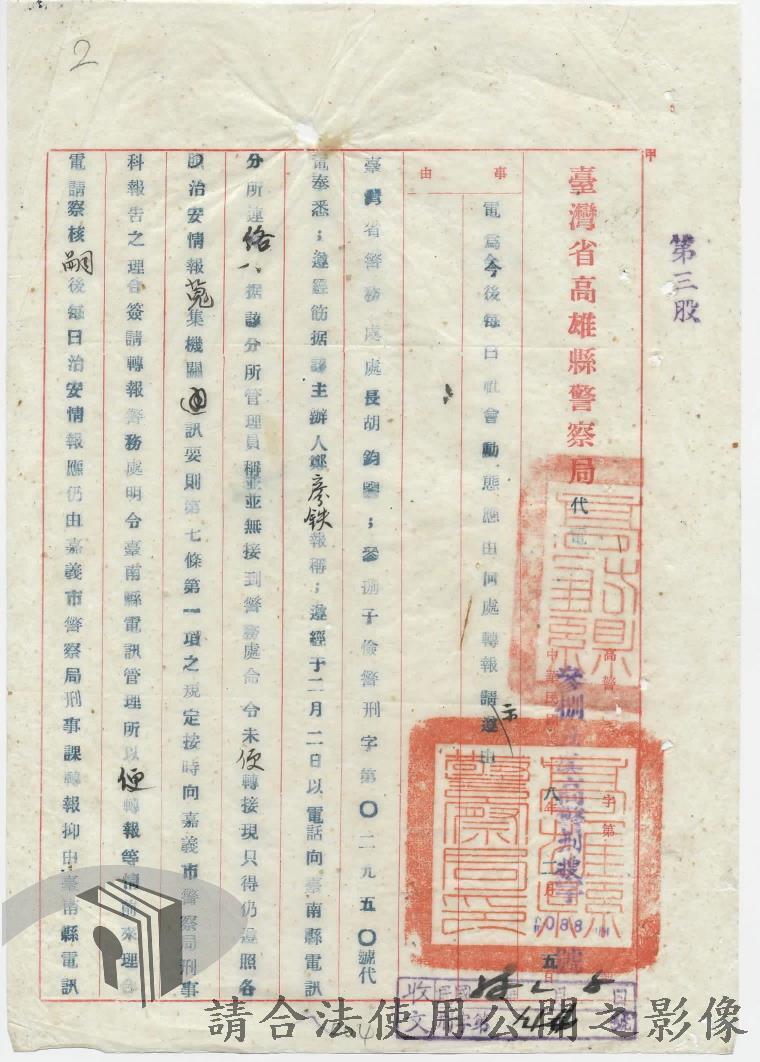 2
第三股
甲
臺灣省高雄縣警察局代電
高警 字第 號
中華民國 八年二月五日
高雄縣警察局印
事由
電為今後每日社會動態應由何處轉報請示遵由
臺灣省警務處處長胡鈞鑒；參捌子儉警刑字第〇二九五〇號代
電奉悉；遵經飭据該主辦人鄭 報稱；遵經于二月二日以電話向臺南縣電訊
分所連絡 据該分所管理員稱並並無接到警務處命令未便轉接現只得仍遵照各
治安情報蒐集機關通訊要則第七條第一項之規定按時向嘉義市警察局刑事
科報告之理合簽請轉報警務處明令臺南縣電訊管理所以便轉報等情前來理合
電請察核嗣後每日治安情報應仍由嘉義市警察局刑事課轉報抑由臺南縣電訊
收文
請合法使用公開之影像